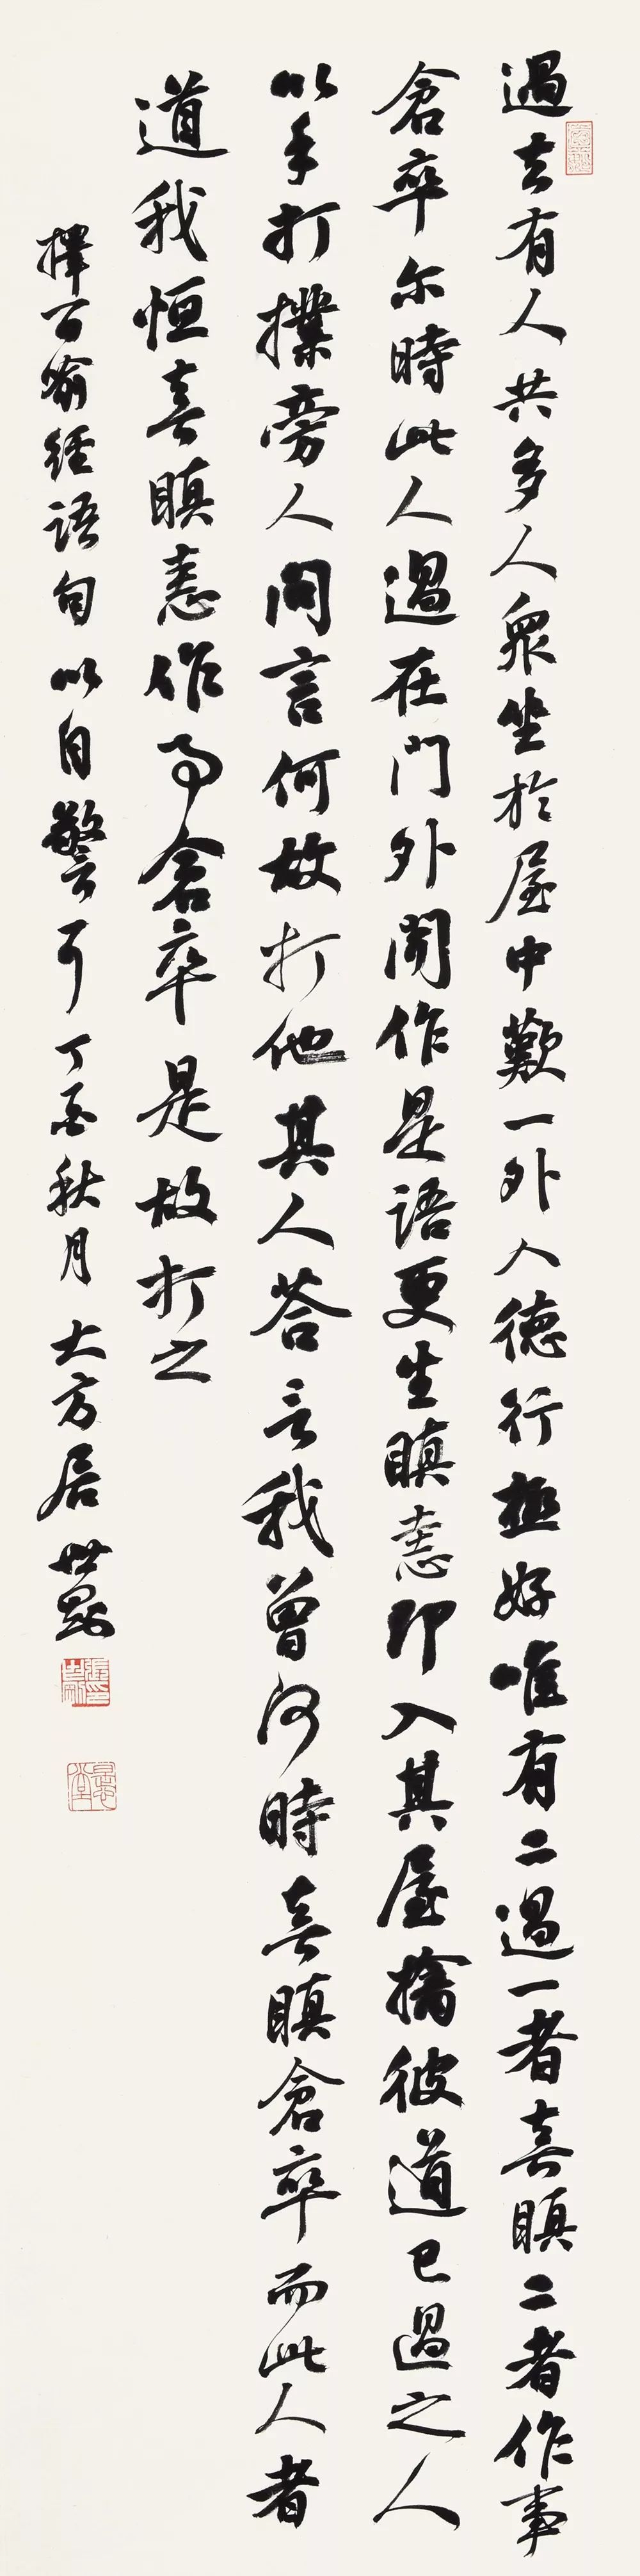 過去有人共多人衆坐於屋中歎一外人德行極好唯有二過一者喜瞋二者作事
倉卒尔時此人過在門外聞作是語更生瞋恚即入其屋擒彼道己過之人
以手打撲旁人問言何故打他其人答言我曾何時喜瞋倉卒而此人者
道我恒喜瞋恚作事倉卒是故打之
擇百喻經語句以自警耳丁酉秋月大方居世剛